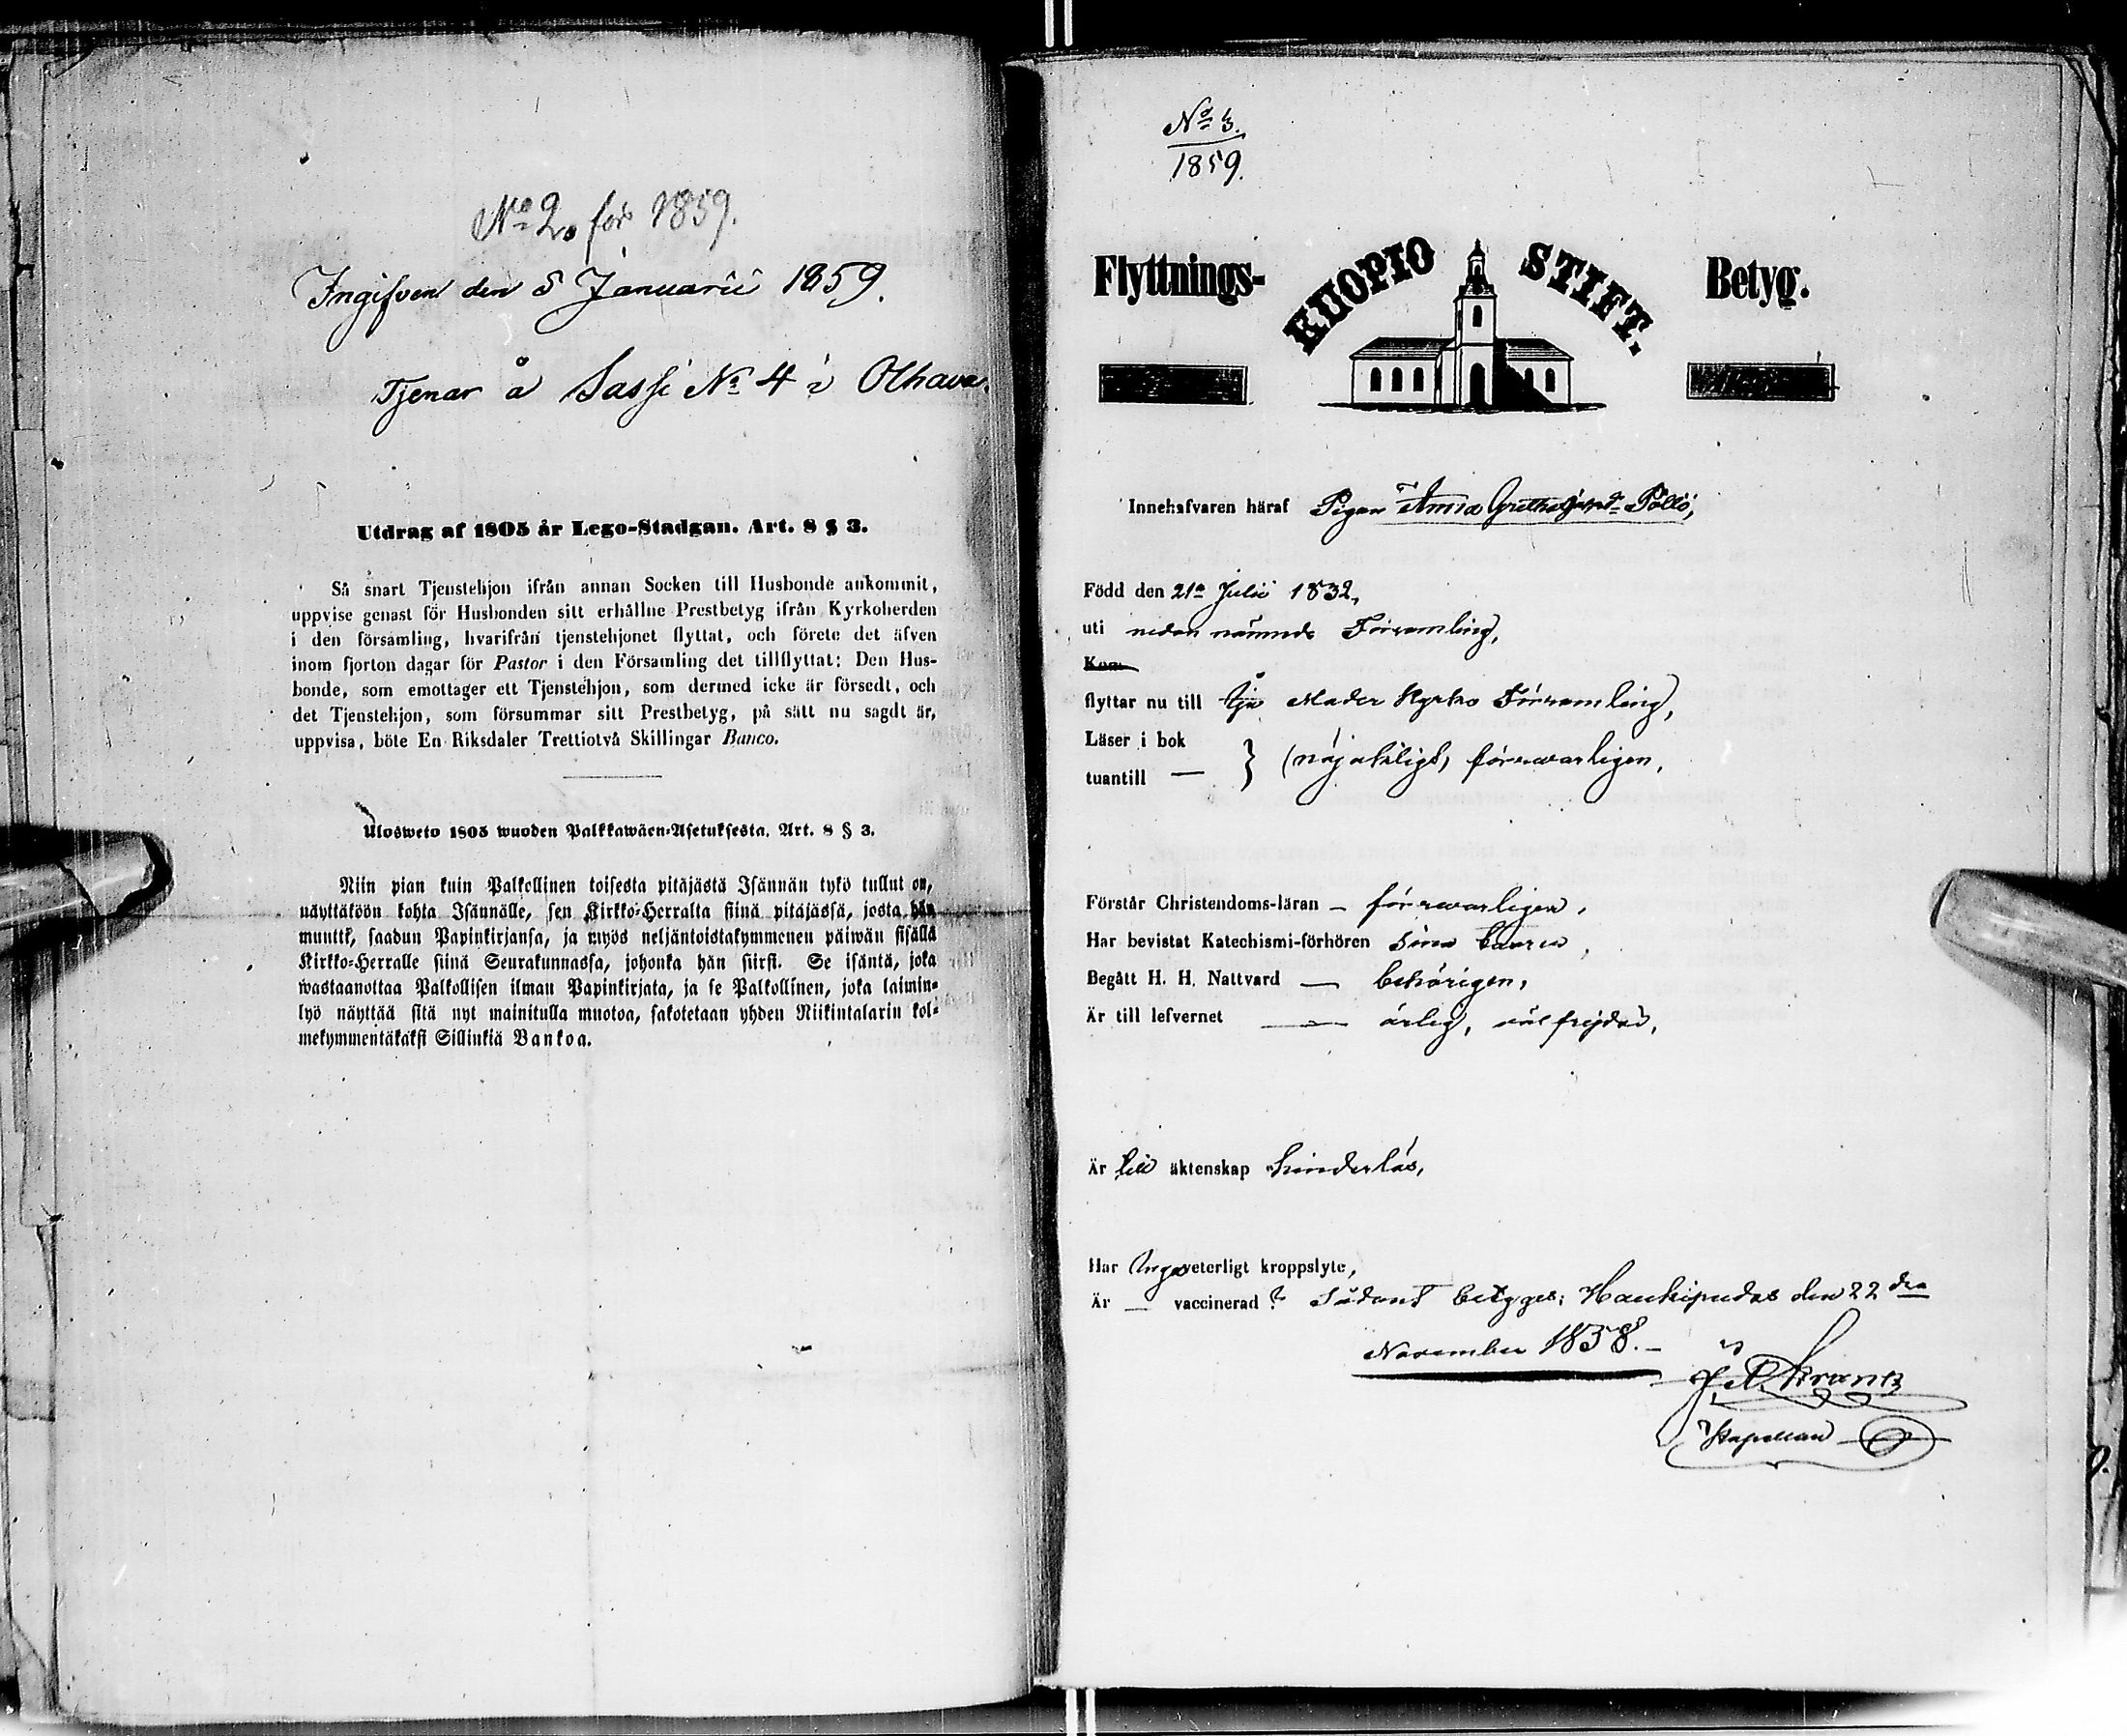 No 2. för 1859.
Ingifven den 8 Januarii 1859.
Tjenar å Sassi No 4 i Olhava.
Utdrag af 1805 år Lego-Stadgan. Art. 8 § 3.
Så snart Tjenstehjon ifrån annan Socken till Husbonde ankommit,
uppvise genast för Husbonden sitt erhållne Prestbetyg ifrån Kyrkoherden
i den församling, hvarifrån tjenstehjonet flyttat, och förete det äfven
inom fjorton dagar för Pastor i den Församling det tillflyttat: Den Hus-
bonde, som emottager ett Tjenstehjon, som dermed icke är försedt, och
det Tjenstehjon, som försummar sitt Prestbetyg, på sätt nu sagdt är,
uppvisa, böte En Riksdaler Trettiotvå Skillingar Banco.
Ulosweto 1805 wuoden Palkkawäen-Asetuksesta. Art. 8 § 3.
Niin pian kuin Palkollinen toisesta pitäjästä Isännän tykö tullut on,
näyttäköön kohta Isännälle, sen Kirkko-Herralta siinä pitäjässä, josta hän
muutti, saadun Papinkirjansa, ja myös neljäntoistakymmenen päiwän sisällä
Kirkko-Herralle siinä Seurakunnassa, johonka hän siirsi. Se isäntä, joka
wastaanottaa Palkollisen ilman Papinkirjata, ja se Palkollinen, joka laimin-
lyö näyttää sitä nyt mainitulla muotoa, sakotetaan yhden Riikintalarin kol-
mekymmentäkaksi Sillinkiä Bankoa.
No 3.
1859.
Flyttnings- KUOPIO STIFT. Betyg.
Innehafvaren häraf Pigan Anna Gretha Pöllö,
Född den 21a Julii 1832,
uti nedan nämnde Församling,
Kom
flyttar nu till Ijo Moder Kyrko Församling,
Läser i bok
tuantill — } (nöjaktligt) försvarligen,
Förstår Christendoms-läran — försvarligen,
Har bevistat Katechismi-förhören sina bären,
Begått H. H. Nattvard — behörigen,
Är till lefvernet — ärlig, väl frejdad,
Är till äktenskap hinderlös,
Har Inga veterligt kroppslyte,
Är — vaccinerad? Sådant betygges; Haukipudas den 22 dra
November 1858.
Kapellan